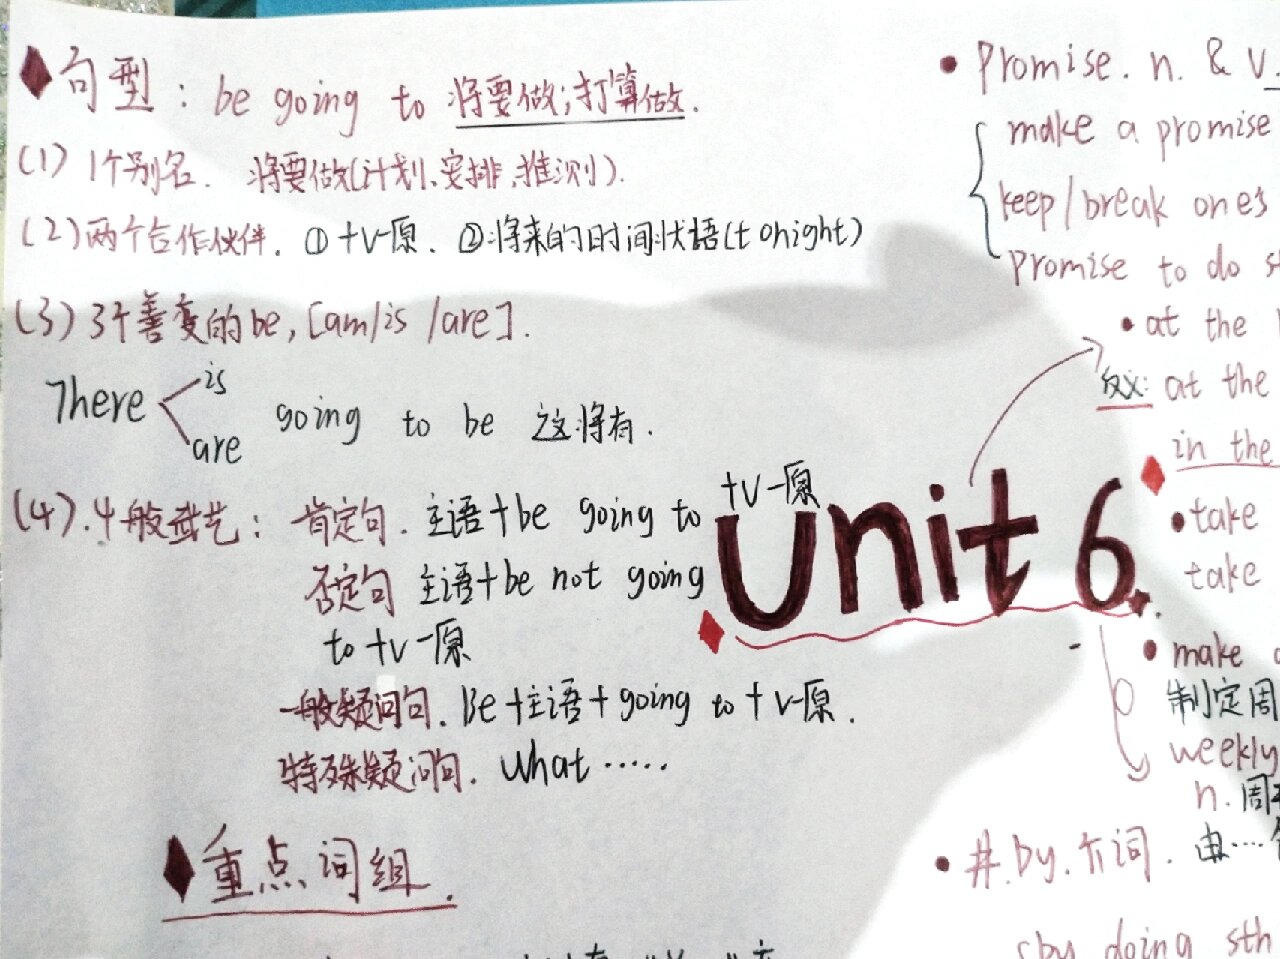 句型：be going to 将要做；打算做．
(1) 1个别名．将要做(计划、安排、推测)．
(2)两个合作伙伴．①+v-原．②将来的时间状语(tonight)
(3) 3个善变的be，[am/is/are]．
There is
are going to be 这将有．
(4)．4般武艺：肯定句．主语+be going to +v-原
否定句 主语+be not going
to +v-原
一般疑问句．Be+主语+going to +v-原．
特殊疑问句．What ……
重点词组．
Unit 6.
Promise. n. & v.
make a promise
keep/break ones
promise to do
at the
反义: at the
in the
take
take
make
制定周
weekly
n. 周
#.by.介词．由…
by doing sth